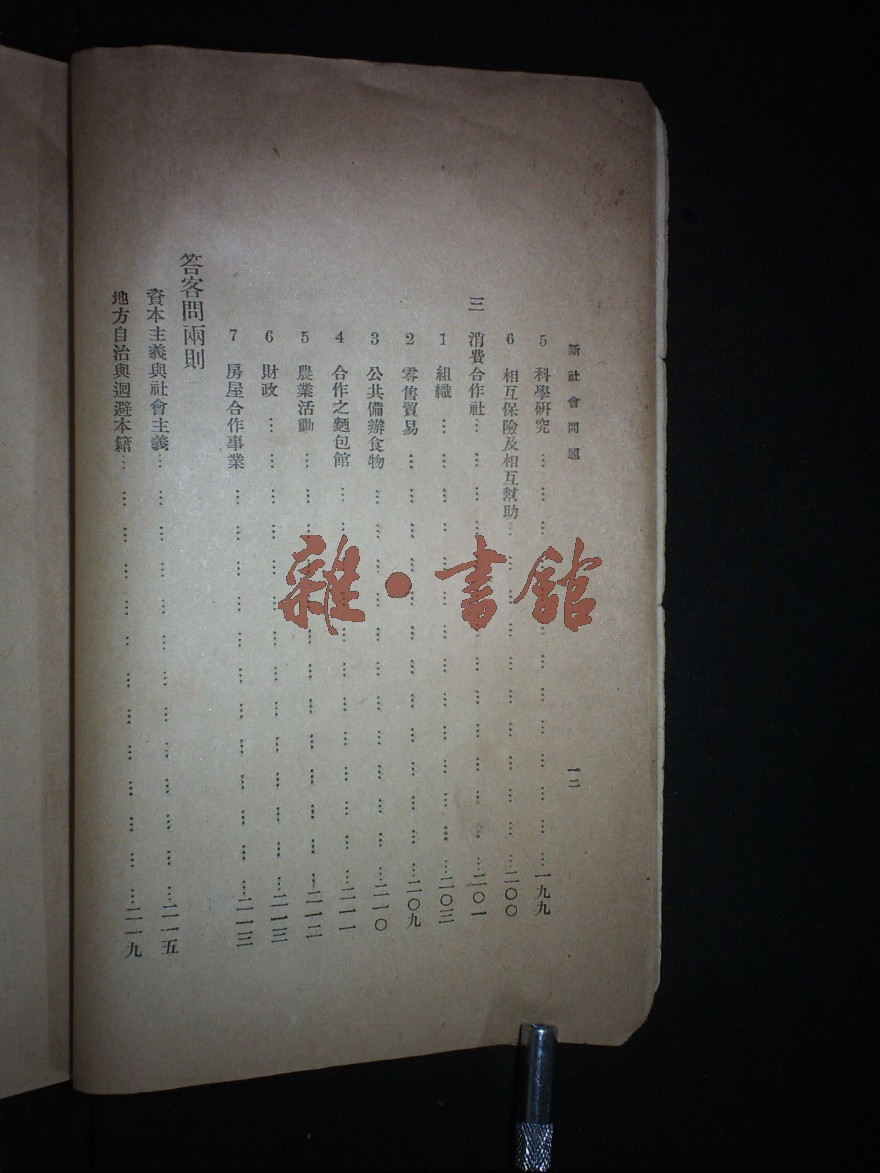 新社會問題
一二
5 科學研究………………………………一九九
6 相互保險及相互幫助………………………………二〇〇
三 消費合作社………………………………二〇一
1 組織………………………………二〇三
2 零售貿易………………………………二〇九
3 公共備辦食物………………………………二一〇
4 合作之麵包館………………………………二一一
5 農業活動………………………………二一二
6 財政………………………………二一三
7 房屋合作事業………………………………二一三
答客問兩則
資本主義與社會主義………………………………二一五
地方自治與迴避本籍………………………………二一九
雜·書館